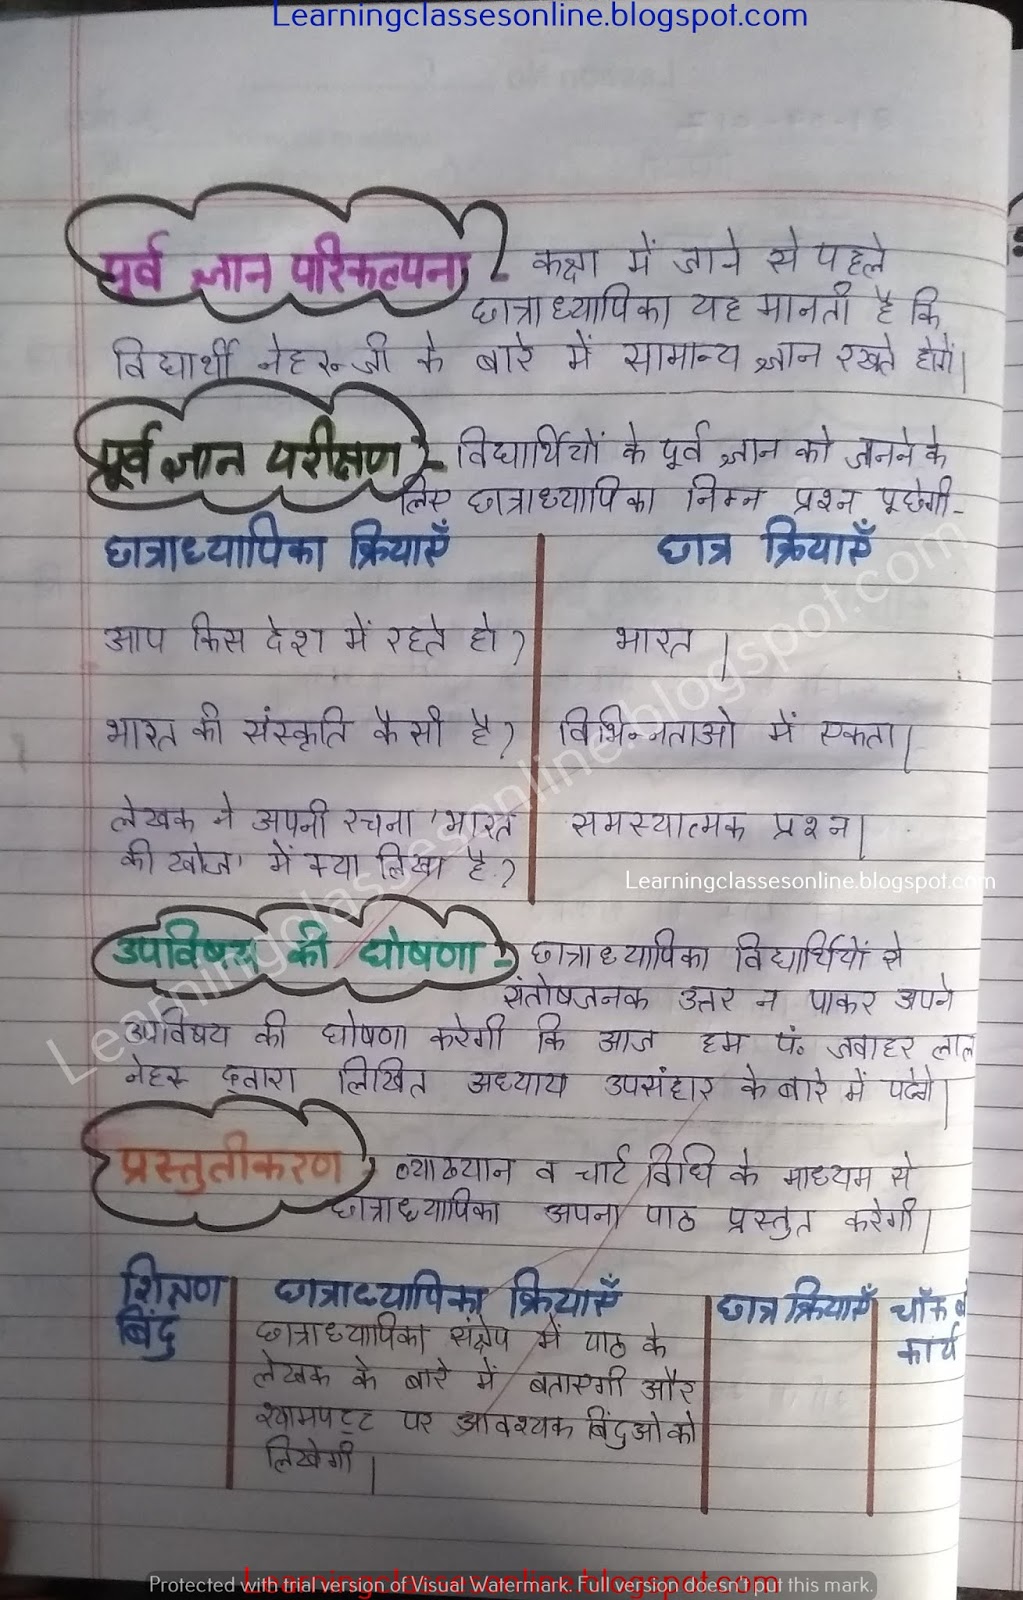 Learningclassesonline.blogspot.com
पूर्व ज्ञान परिकल्पना :- कक्षा में जाने से पहले
छात्राध्यापिका यह मानती है कि
विद्यार्थी नेहरू जी के बारे में सामान्य ज्ञान रखते होगें।
पूर्व ज्ञान परीक्षण :- विद्यार्थियों के पूर्व ज्ञान को जानने के
लिए छात्राध्यापिका निम्न प्रश्न पूछेगी-
छात्राध्यापिका क्रियाएँ छात्र क्रियाएँ
आप किस देश में रहते हो? भारत।
भारत की संस्कृति कैसी है? विभिन्नताओ में एकता।
लेखक ने अपनी रचना 'भारत समस्यात्मक प्रश्न।
की खोज' में क्या लिखा है?
Learningclassesonline.blogspot.com
उपविषय की घोषणा :- छात्राध्यापिका विद्यार्थियों से
संतोषजनक उत्तर न पाकर अपने
उपविषय की घोषणा करेगी कि आज हम पं. जवाहर लाल
नेहरू द्वारा लिखित अध्याय उपसंहार के बारे में पढेगे।
प्रस्तुतीकरण :- व्याख्यान व चार्ट विधि के माध्यम से
छात्राध्यापिका अपना पाठ प्रस्तुत करेगी।
शिक्षण छात्राध्यापिका क्रियाएँ छात्र क्रियाएँ चॉक
बिंदु कार्य
छात्राध्यापिका संक्षेप में पाठ के
लेखक के बारे में बताएगी और
श्यामपट्ट पर आवश्यक बिंदुओ को
लिखेगी।
Learningclassesonline.blogspot.com
Learningclassesonline.blogspot.com
Protected with trial version of Visual Watermark. Full version doesn't put this mark.